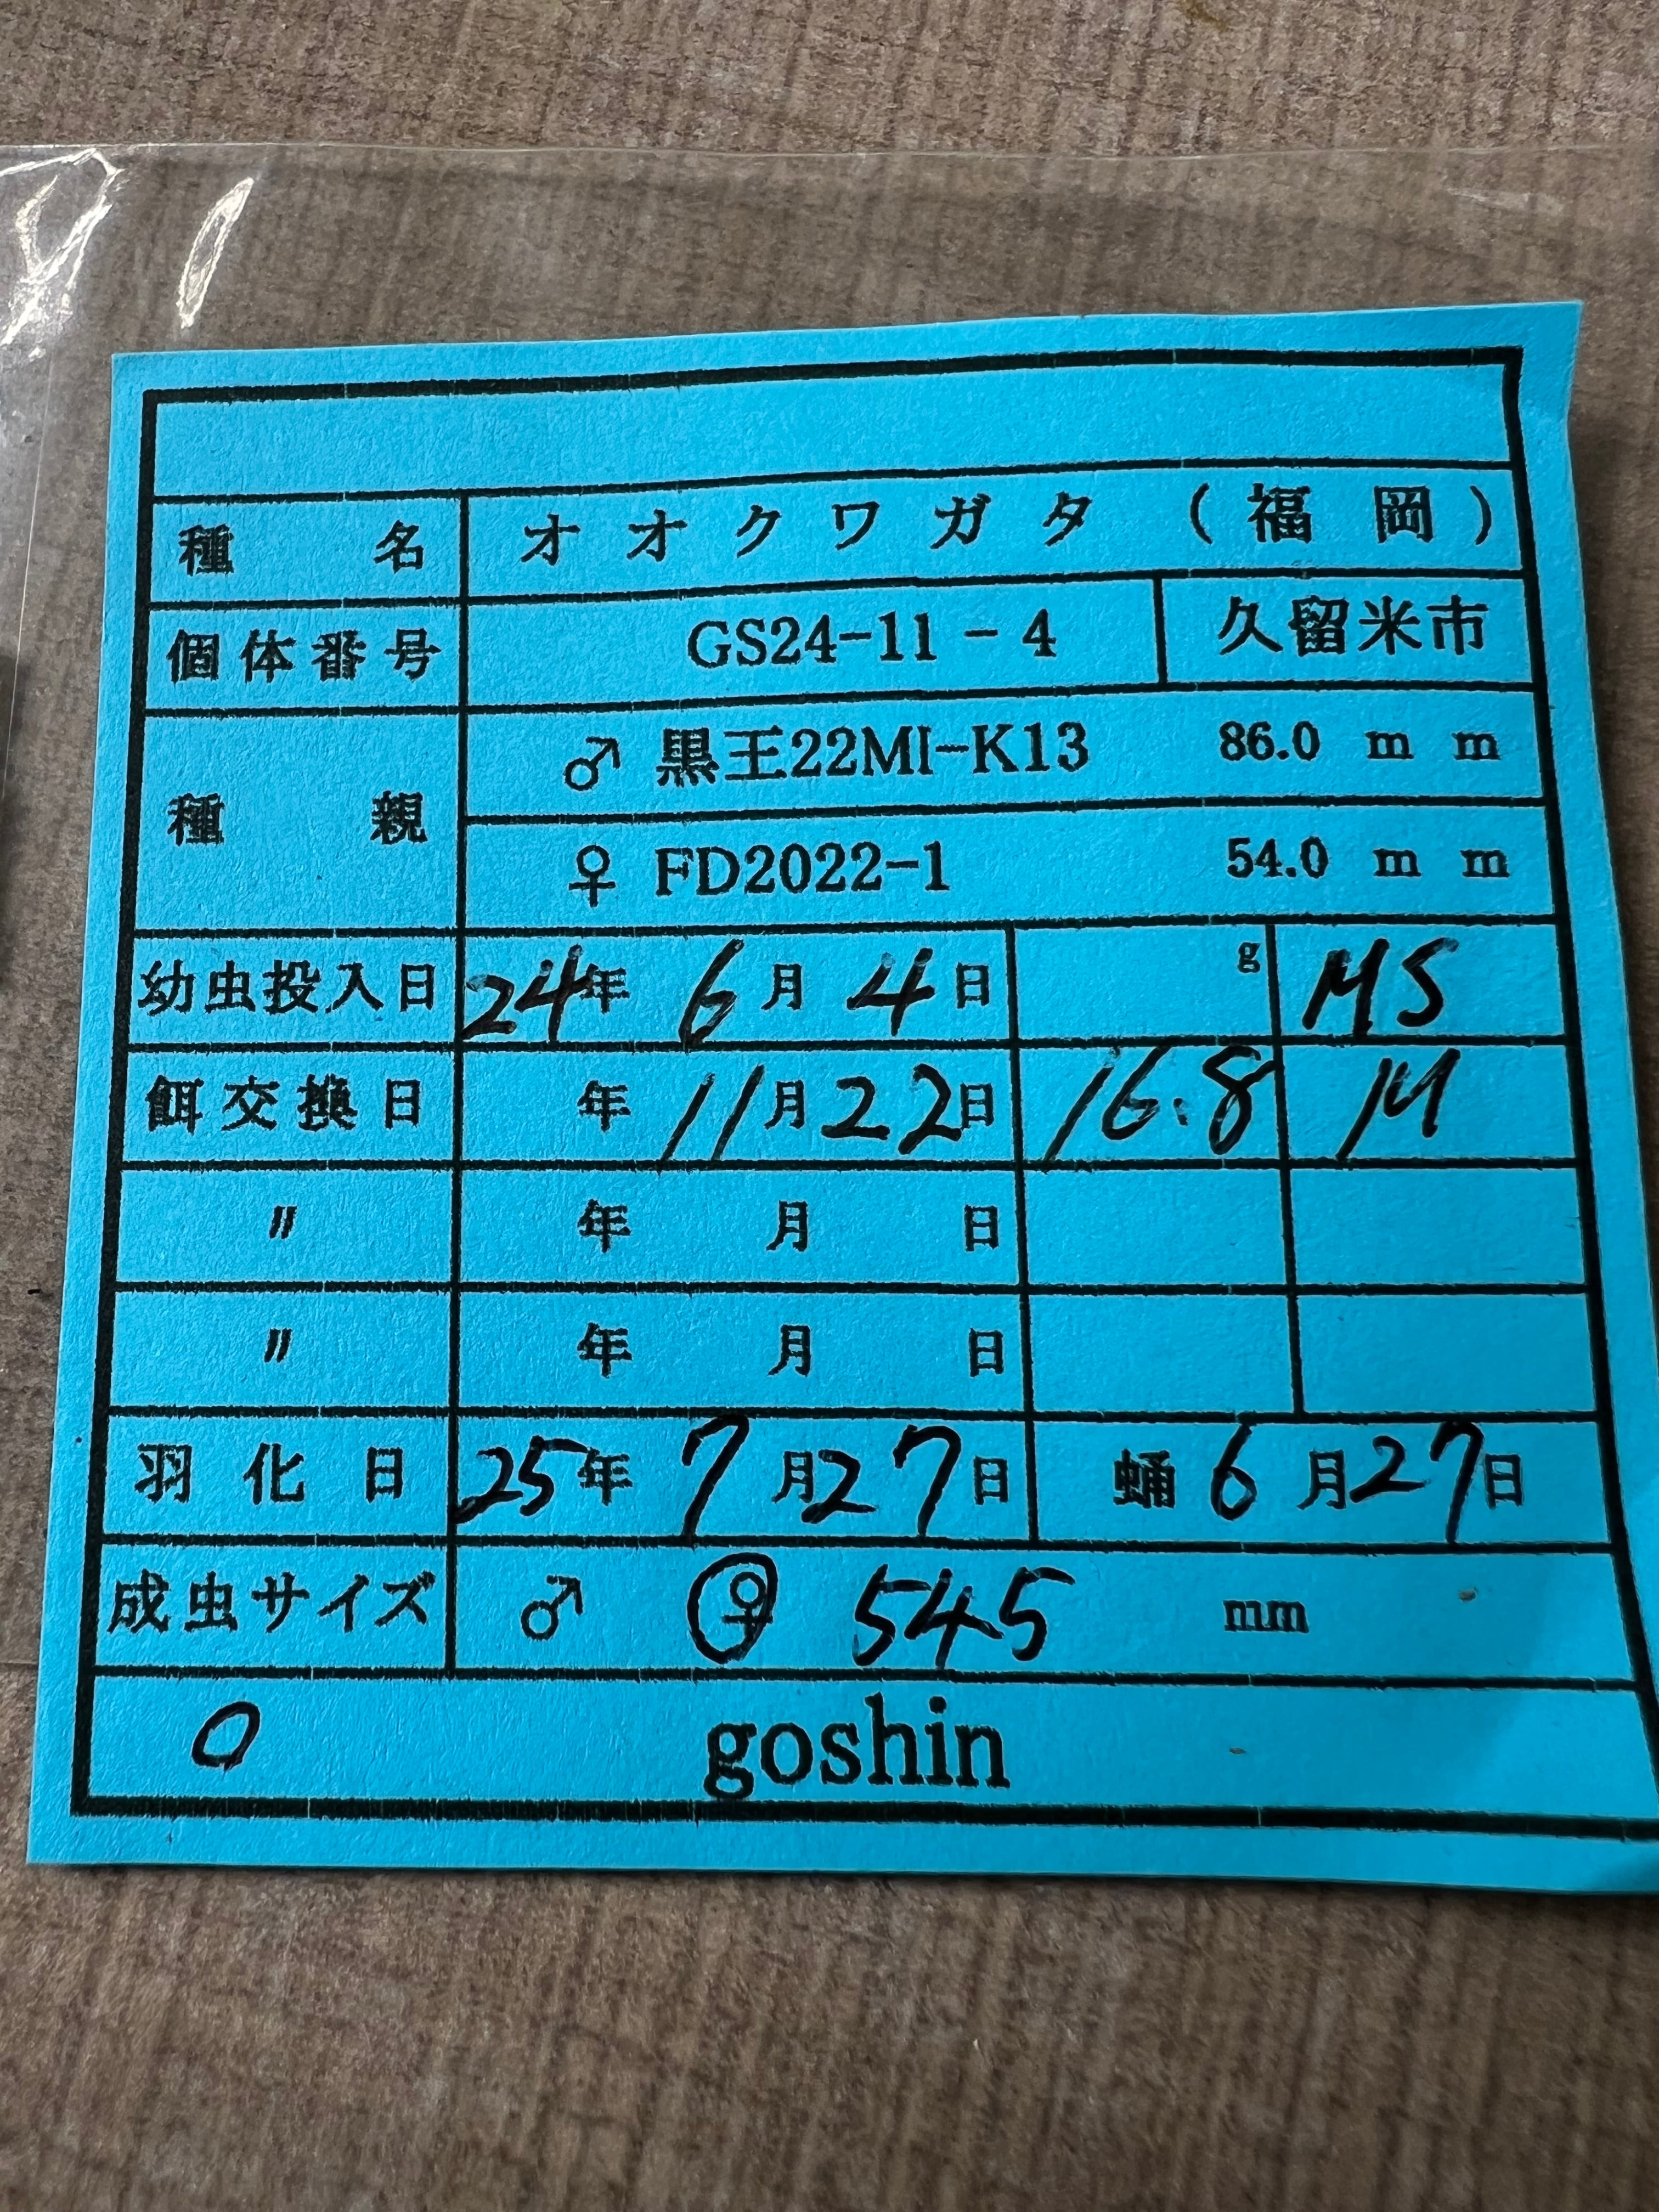 種名 オオクワガタ（福岡）
個体番号 GS24-11-4 久留米市
種親 ♂ 黒王22MI-K13 86.0 mm
♀ FD2022-1 54.0 mm
幼虫投入日 24年 6月 4日 g MS
餌交換日 年 11月 22日 16.8 M
〃 年 月 日
〃 年 月 日
羽化日 25年 7月 27日 蛹 6月 27日
成虫サイズ ♂ ♀ 545 mm
O goshin